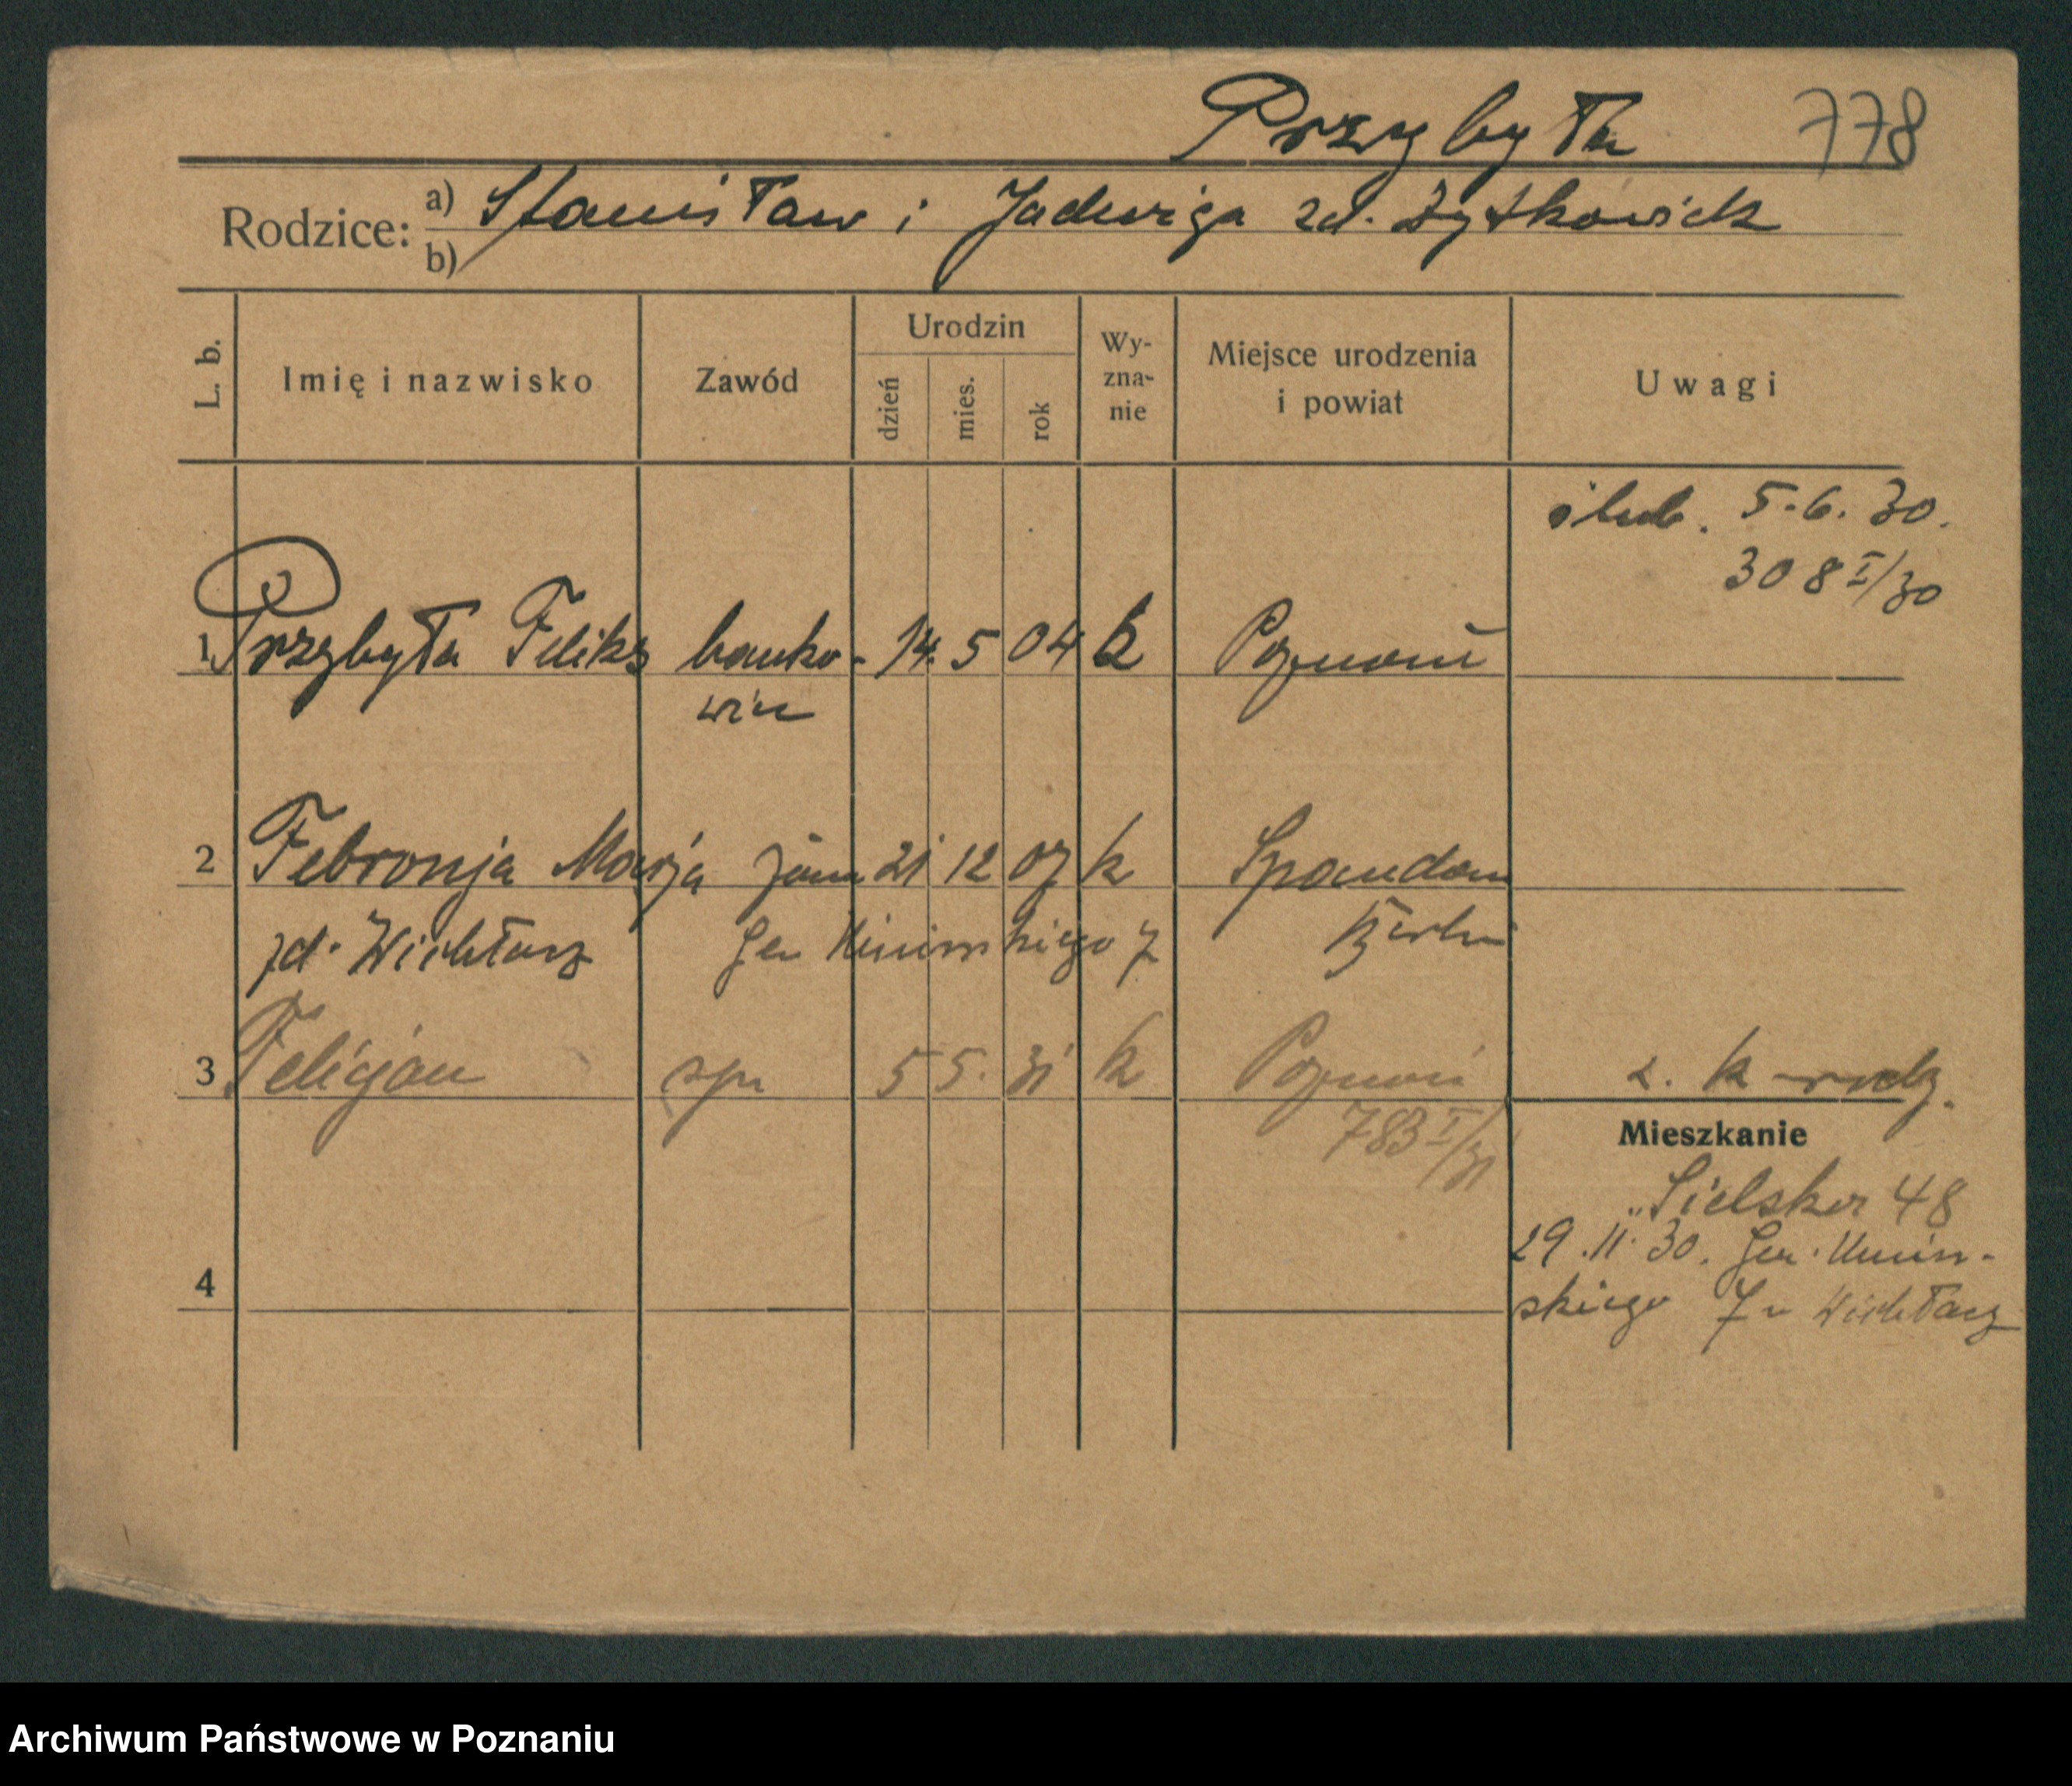 Przybyła 778
Rodzice: a) Stanisław i Jadwiga zd. Żytkowick
b)
L. b. Imię i nazwisko Zawód Urodzin Wy-zna-nie Miejsce urodzenia i powiat Uwagi
dzień mies. rok
ślub. 5.6.30.
308 I/30
1 Przybyła Feliks banko- 14. 5 04 k Poznań
wiec
2 Febronja Marja 21 12 07 k Spandau
zd. Wichłacz Gen Umińskiego 7 Berlin
3 Felicjan syn 5 5. 31 k Poznań r. k
783 I/31
Mieszkanie
Sielska 48
29.11.30. Gen. Umiń-
4
skiego 7 u Wichłacz
Archiwum Państwowe w Poznaniu